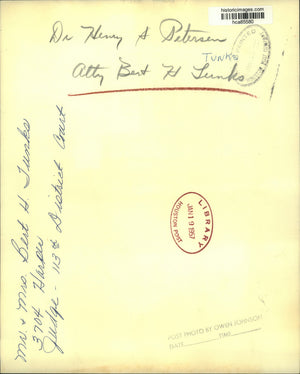 historicimages.com
hca85580
Dr Henry A Petersen
TUNKS
Atty Bert H Tunks
Mr. & Mrs. Bert H. Tunks
3704 Harper
Judge - 113th District Court
LIBRARY
JAN 19 1957
HOUSTON POST
POST PHOTO BY OWEN JOHNSON
DATE
TIME